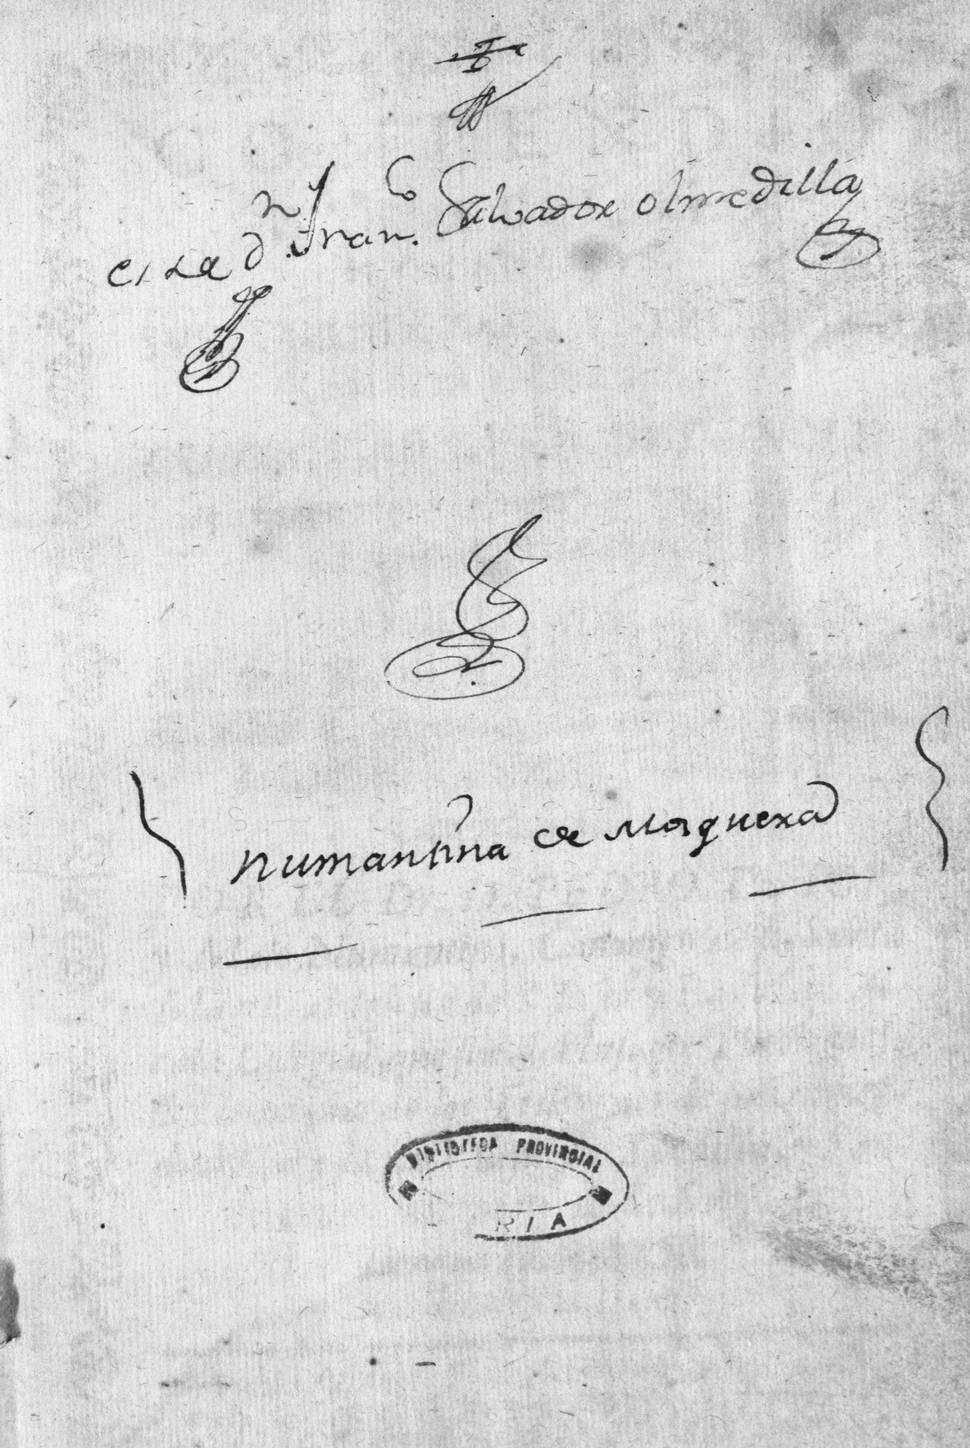 es de Dⁿ Franᶜᵒ Salvador olmedilla
numantina de Mosquera
BIBLIOTECA PROVINCIAL
RIA